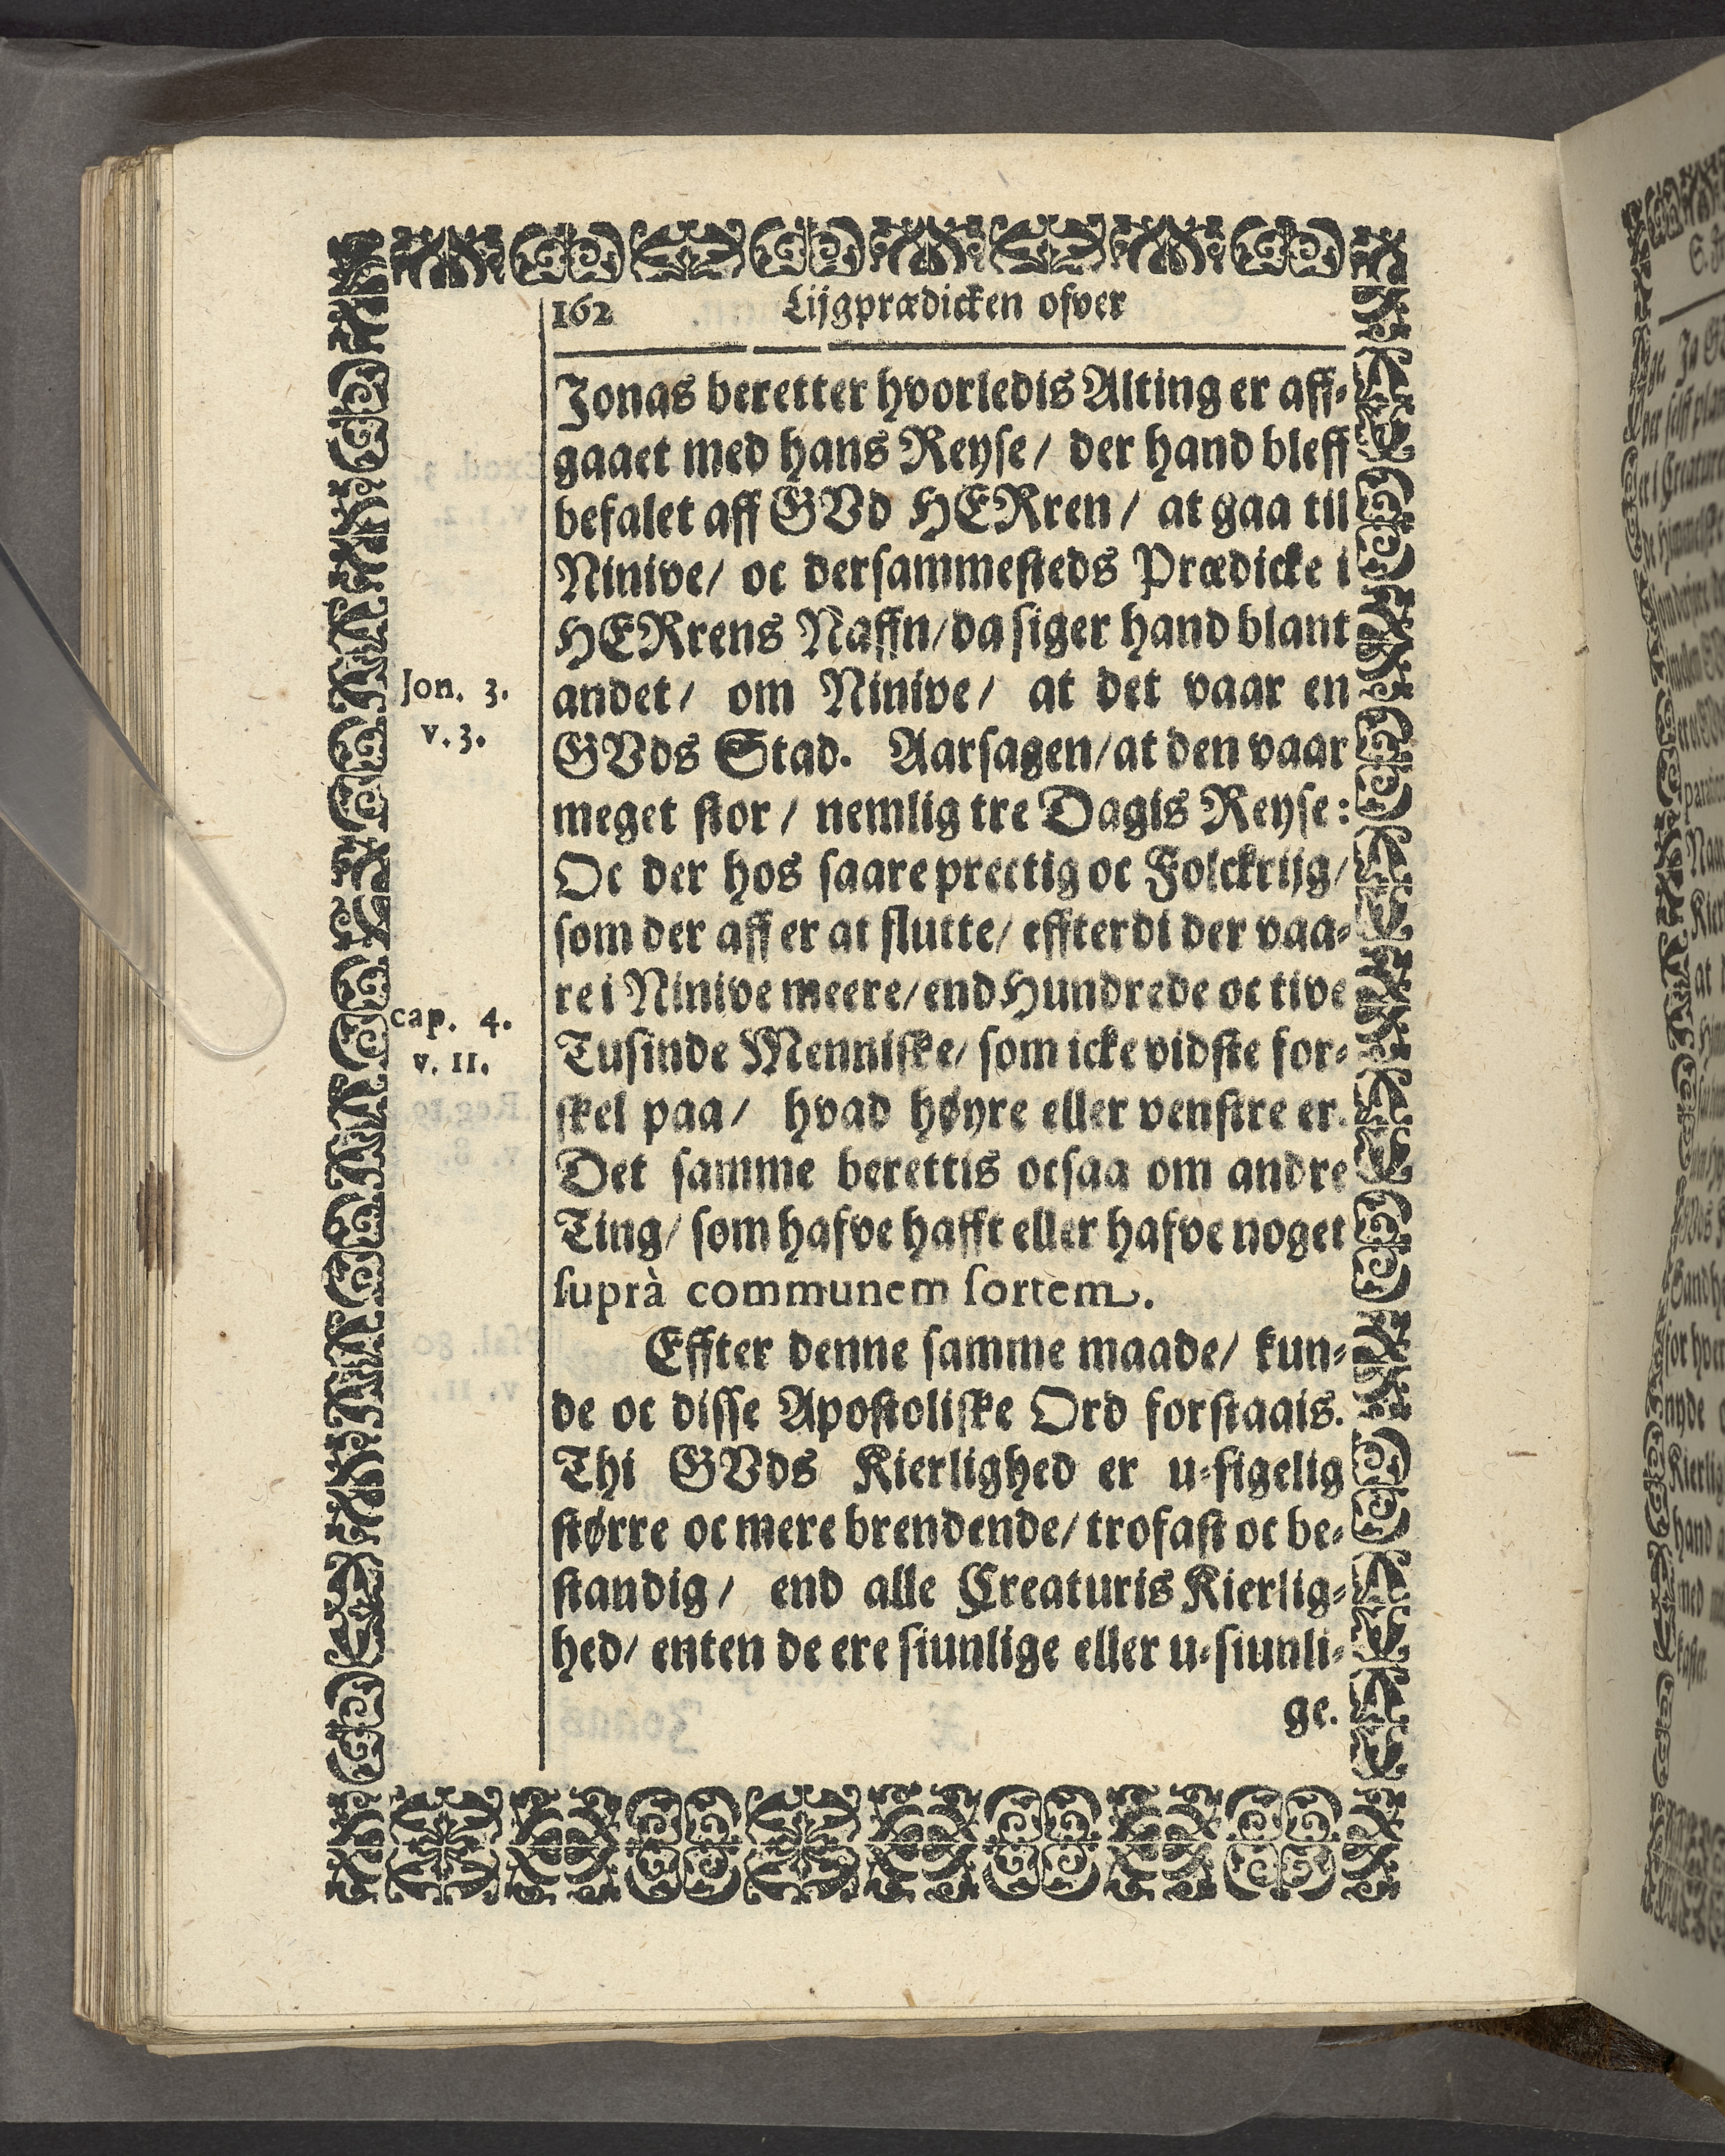 162 Lijgprædicken ofver
Jonas beretter hvorledis Alting er aff-
gaaet med hans Reyse / der hand bleff
befalet aff GVd HERren / at gaa til
Ninive / oc dersammesteds Prædicke i
HERrens Naffn / da siger hand blant
Jon. 3.
andet / om Ninive / at det vaar en
v. 3.
GVds Stad. Aarsagen / at den vaar
meget stor / nemlig tre Dagis Reyse :
Oc der hos saare prectig oc Folckrijg /
som der aff er at slutte / effterdi der vaa-
re i Ninive meere / end Hundrede oc tive
cap. 4.
Tusinde Menniske / som icke vidste for-
v. 11.
skel paa / hvad høyre eller venstre er.
Det samme berettis ocsaa om andre
Ting / som hafve hafft eller hafve noget
suprà communem sortem.
Effter denne samme maade / kun-
de oc disse Apostoliske Ord forstaais.
Thi GVds Kierlighed er u-sigelig
større oc mere brendende / trofast oc be-
standig / end alle Creaturis Kierlig-
hed / enten de ere siunlige eller u-siunli-
ge.